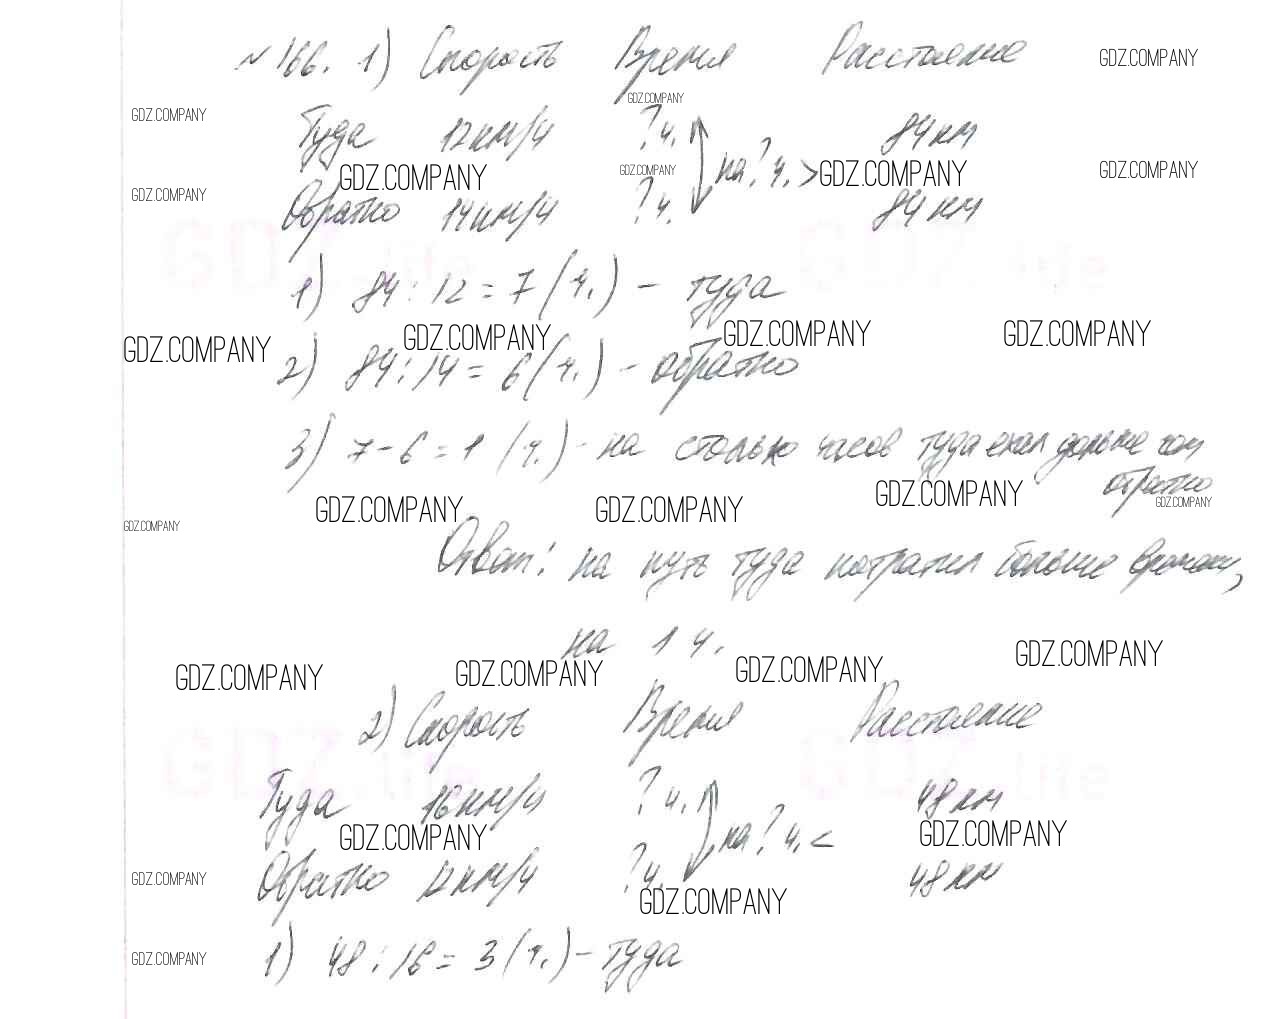 №166. 1) Скорость Время Расстояние GDZ.COMPANY
GDZ.COMPANY GDZ.COMPANY
Туда 12км/ч ?ч. 84км
GDZ.COMPANY GDZ.COMPANY на ? ч. > GDZ.COMPANY GDZ.COMPANY
GDZ.COMPANY
Обратно 14км/ч ?ч. 84км
GDZ.life GDZ.life
1) 84:12=7(ч.) - туда
GDZ.COMPANY GDZ.COMPANY GDZ.COMPANY GDZ.COMPANY
2) 84:14=6(ч.) - обратно
3) 7-6=1 (ч.) - на столько часов туда ехал дольше чем
обратно
GDZ.COMPANY GDZ.COMPANY GDZ.COMPANY GDZ.COMPANY
GDZ.COMPANY
Ответ: на путь туда потратил больше времени,
на 1 ч.
GDZ.COMPANY GDZ.COMPANY GDZ.COMPANY GDZ.COMPANY
2) Скорость Время Расстояние
GDZ.life GDZ.life
Туда 16км/ч ?ч. 48км
GDZ.COMPANY на ? ч. < GDZ.COMPANY
GDZ.COMPANY Обратно 12км/ч ?ч. 48км
GDZ.COMPANY
GDZ.COMPANY 1) 48:16=3(ч.) - туда